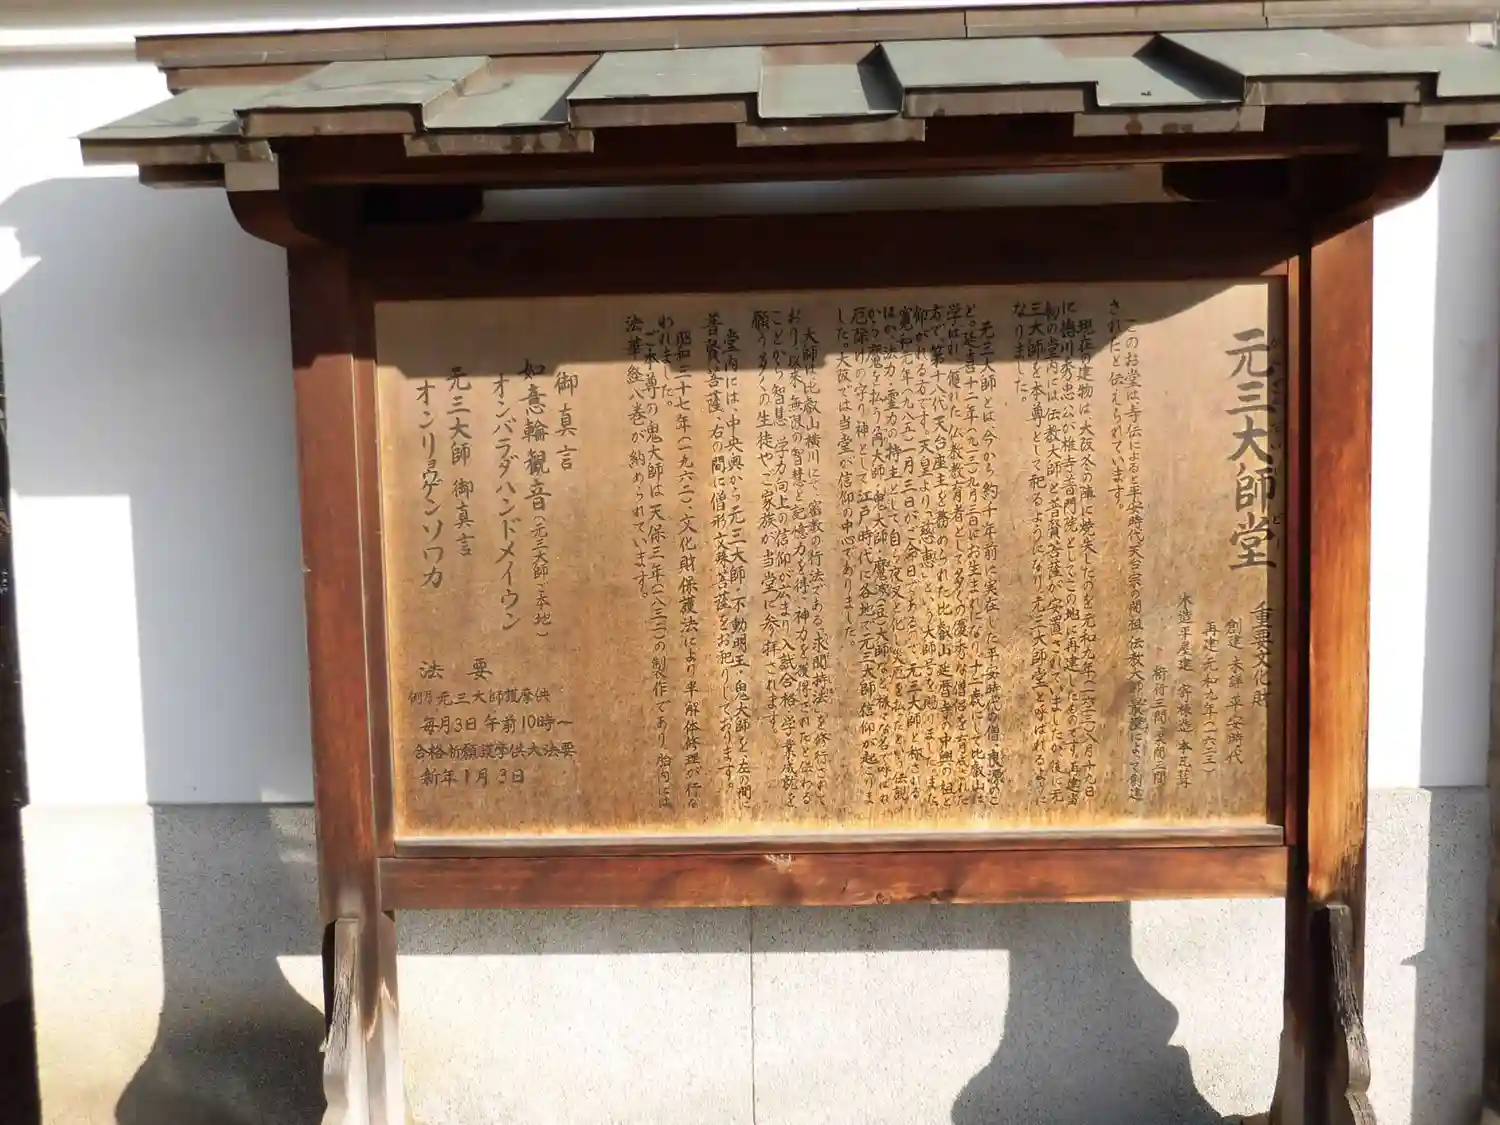 元三大師堂
重要文化財
創建 未詳 平安時代
再建 元和九年(一六二三)
木造平屋建 寄棟造 本瓦葺
桁行三間 梁間三間
このお堂は寺伝によると平安時代天台宗の開祖 伝教大師最澄によって創建
されたと伝えられています。
現在の建物は大阪冬の陣に焼失したのを元和九年(一六二三)八月十九日
に徳川秀忠公が椎寺普門院としてこの地に再建したものです。再建当
初の堂内には伝教大師と普賢菩薩が安置されていましたが後に元
三大師を本尊として祀るようになり元三大師堂と呼ばれるように
なりました。
元三大師とは今から約千年前に実在した平安時代の僧、良源のこ
と。延喜十二年(九一二)九月三日にお生まれになり十二歳にて比叡山に
学ばれ、優れた仏教教育者として多くの優秀な僧侶を育成された
方で、第十八代天台座主を務められた比叡山延暦寺の中興の祖と
仰がれる方です。天皇より「慈恵」という大師号を賜りました。また、
寛和元年(九八五)一月三日がご命日であるので元三大師と称される
ほか、法力・霊力の持主として自ら夜叉と化し災厄を払ったと伝説
から魔を払う角大師・鬼大師・魔滅(豆)大師など様々な名で呼ばれ
厄除けの守り神として江戸時代に各地で元三大師信仰が起こりま
した。大阪では当堂が信仰の中心でありました。
大師は比叡山横川にて、密教の行法である「求聞持法」を修行されて
おり、以来、無限の智慧と記憶力を得、神力を獲得されたと伝わる
ことから智慧・学力向上の信仰が広まり入試合格・学業成就を
願う多くの生徒やご家族が当堂に参拝されます。
堂内には、中央奥から元三大師・不動明王・鬼大師を、左の間に
普賢菩薩、右の間に僧形文殊菩薩をお祀りしております。
昭和三十七年(一九六二)、文化財保護法により半解体修理が行な
われました。
ご本尊の鬼大師は天保三年(一八三二)の製作であり、胎内には
法華経八巻が納められています。
御真言
如意輪観音(元三大師ご本地)
オンバラダハンドメイウン
元三大師 御真言
オンリョウゲンソワカ
法 要
例月 元三大師護摩供
毎月3日 午前10時～
合格祈願護摩供大法要
新年1月3日